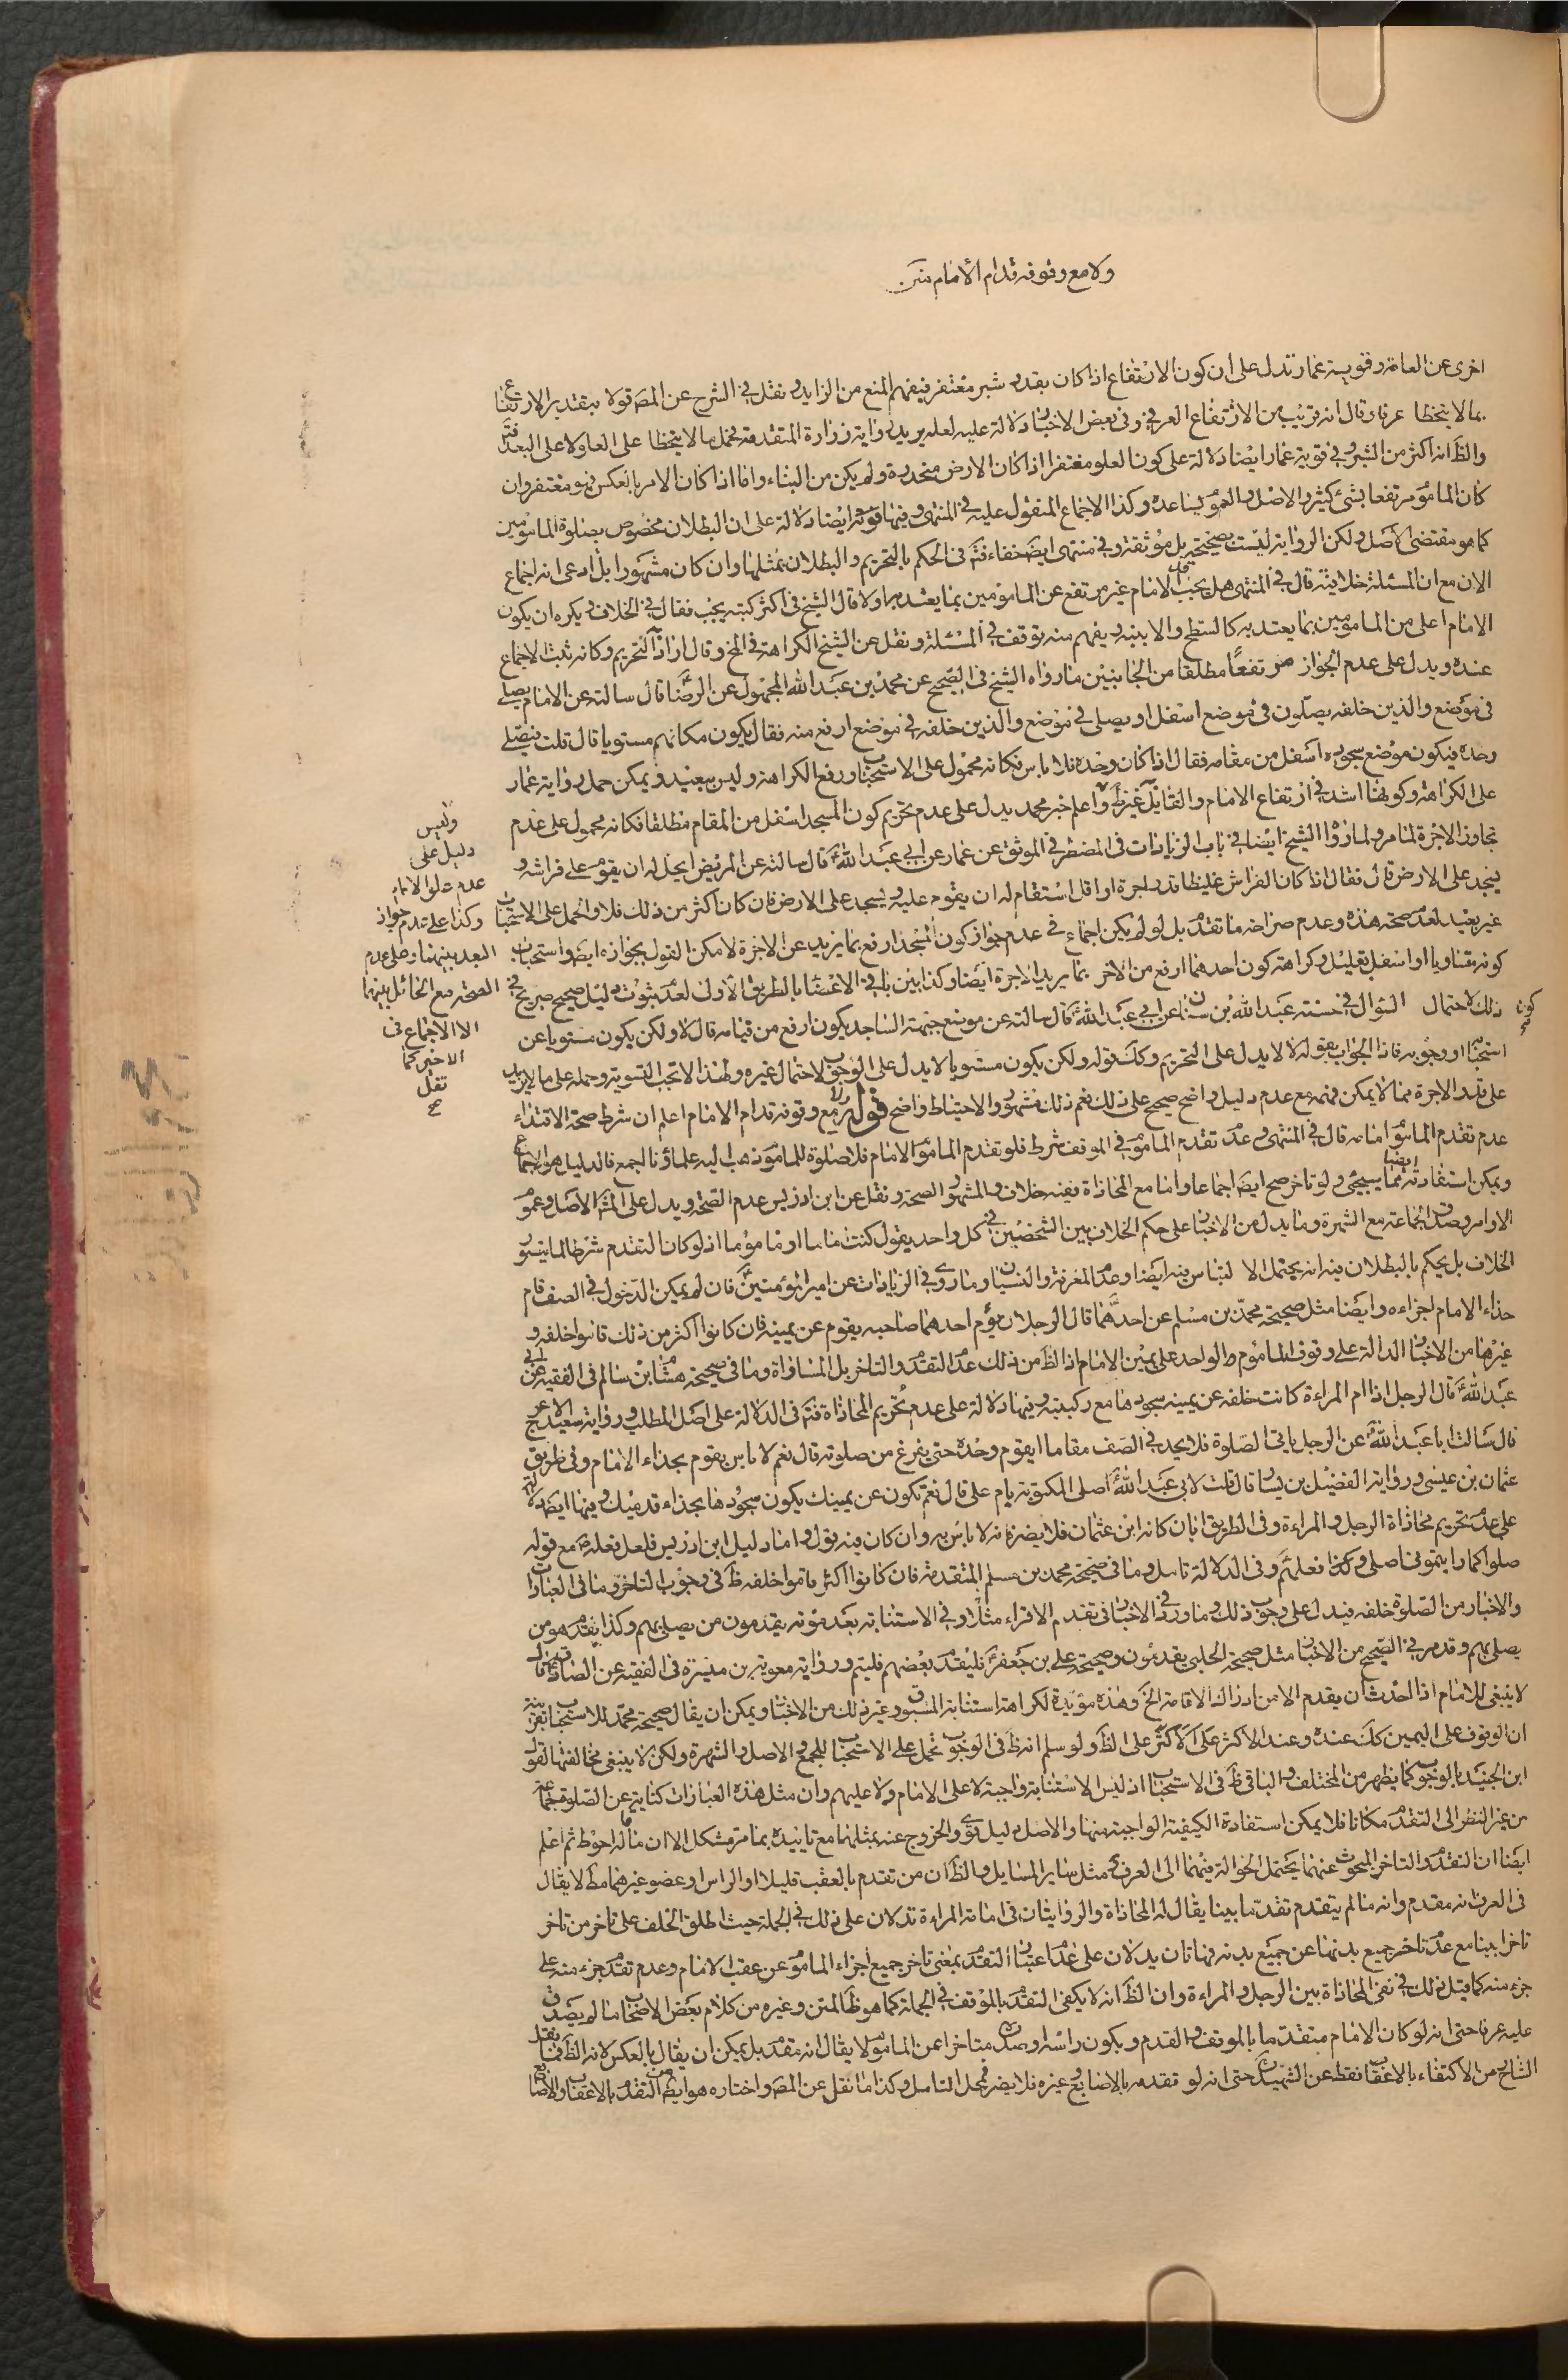 ولا مع وقوفه قدام الامام متن
اخرى عن العامة وقوية عمار تدل على ان كون الارتفاع اذا كان بقدر شبر مغتفر فيفهم المنع من الزايد ونقل في الشرح عن المص قولا بتقدير الارتفاع
بما لا يتخطا عرفا وقال انه قريب من الارتفاع العرفي وفي بعض الاخبار دلالة عليه لعله يريد رواية زرارة المتقدمة فحمل ما لا يتخطا على العلو لا على البعد فتم
والظ انه اكثر من الشبر وفي قوية عمار ايضا دلالة على كون العلو مغتفرا اذا كان الارض منحدرة ولم يكن من البناء واما اذا كان الامر بالعكس فهو مغتفر وان
كان الماموم مرتفعا بشئ كثير والاصل والعموم يساعده وكذا الاجماع المنقول عليه في المنتهى وفيها قوة ايضا دلالة على ان البطلان مخصوص بصلوة المامومين
كما هو مقتضى الاصل ولكن الرواية ليست بصحيحة بل موثقة وفي منتهى ايض خفاء فتم في الحكم بالتحريم والبطلان بمثلها وان كان مشهورا بل ادعى انه اجماع
الان مع ان المسئلة خلافية قال في المنتهى هل يجب كون الامام غير مرتفع عن المامومين بما يعتد به اولا قال الشيخ في اكثر كتبه يجب فقال في الخلاف يكره ان يكون
الامام اعلى من المامومين بما يعتد به كالسطح والابنية ويفهم منه توقف في المسئلة ونقل عن الشيخ الكراهة في الخ وقال اراد التحريم وكانه ثبت الاجماع
عنده ويدل على عدم الجواز مرتفعا مطلقا من الجانبين ما رواه الشيخ في الصحيح عن محمد بن عبد الله المجهول عن الرضا قال سالته عن الامام يصلي
في موضع والذين خلفه يصلون في موضع اسفل او يصلي في موضع والذين خلفه في موضع ارفع منه فقال يكون مكانهم مستويا قال قلت فيصلي
وحده فيكون موضع سجوده اسفل من مقامه فقال اذا كان وحده فلا باس فكانه محمول على الاستحباب ورفع الكراهة وليس ببعيد ويمكن حمل رواية عمار
على الكراهة وكونها اشد في ارتفاع الامام والقايل غير ظ واعلم خبر محمد يدل على عدم تحريم كون المسجد اسفل من المقام مطلقا فكانه محمول على عدم
تجاوز الاجرة لما مر ولما رواه الشيخ ايضا في باب الزيادات في المضطر في الموثق عن عمار عن ابي عبد الله قال سالته عن المريض ايحل له ان يقوم على فراشه و
يسجد على الارض قال فقال اذا كان الفراش غليظا قدر اجرة او اقل استقام له ان يقوم عليه ويسجد على الارض فان كان اكثر من ذلك فلا والحمل على الاستحباب
غير بعيد لعدم صحة هذه وعدم صراحة ما تقدم بل لو لم يكن اجماع في عدم جواز كون المسجد ارفع بما يزيد عن الاجرة لامكن القول بجوازه ايض واستحباب
كونه مساويا او اسفل بقليل وكراهة كون احدهما ارفع من الاخر بما يزيد الاجرة ايضا وكذا بين باقي الاعضاء بالطريق الاولى لعدم ثبوت دليل صحيح صريح في
ذلك لاحتمال كون السؤال في حسنة عبد الله بن سنان عن ابي عبد الله قال سالته عن موضع جبهة الساجد يكون ارفع من قيامه قال لا ولكن يكون مستويا عن
استحبابه او وجوبه فاذا الجواب بقوله لا لا يدل على التحريم وكك قوله ولكن يكون مستويا لا يدل على الوجوب لاحتمال غيره ولهذا لا تجب التسوية وحمله على ما لا يزيد
على قدر الاجرة مما لا يمكن فهمه مع عدم دليل واضح صحيح على ذلك نعم ذلك مشهور والاحتياط واضح قوله ولا مع وقوفه قدام الامام اعلم ان شرط صحة الاقتداء
عدم تقدم الماموم امامه قال في المنتهى وعدم تقدم الماموم في الموقف شرط فلو تقدم الماموم الامام فلا صلوة للماموم ذهب اليه علماؤنا اجمع فالدليل هو الاجماع
ويمكن استفادته ايضا مما يسيجئ ولو تاخر صح ايض اجماعا واما مع المحاذاة ففيه خلاف والمشهور الصحة ونقل عن ابن ادريس عدم الصحة ويدل على المش الاصل وعموم
الاوامر وصدق الجماعة مع الشهرة وما يدل من الاخبار على حكم الخلاف بين الشخصين في كل واحد يقول كنت اماما او ماموما اذ لو كان التقدم شرطا لما تيسر
الخلاف بل يحكم بالبطلان فيه انه يحتمل الالتباس فيه ايضا وعدم المعرفة والنسيان وما روي في الزيادات عن امير المؤمنين فان لم يمكن الدخول في الصف قام
حذاء الامام اجزاءه وايضا مثل صحيحة محمد بن مسلم عن احدهما قال الرجلان يؤم احدهما صاحبه يقوم عن يمينه فان كانوا اكثر من ذلك قاموا خلفه و
غيرها من الاخبار الدالة على وقوف الماموم الواحد على يمين الامام اذ الظ من ذلك عدم التقدم والتاخر بل المساواة وما في صحيحة هشام بن سالم في الفقيه عن ابي
عبد الله قال الرجل اذا ام المراءة كانت خلفه عن يمينه سجودها مع ركبتيه وفيها دلالة على عدم تحريم المحاذاة فتم في الدلالة على اصل المطلب ورواية سعيد الاعرج
قال سالت ابا عبد الله عن الرجل ياتي الصلوة فلا يجد في الصف مقاما ايقوم وحده حتى يفرغ من صلوته قال نعم لا باس يقوم بحذاء الامام وفي طريق
عثمان بن عيسى ورواية الفضيل بن يسار قال قلت لابي عبد الله اصلى المكتوبة بام علي قال نعم تكون عن يمينك يكون سجودها بحذاء قدميك وفيها ايض دلالة
على عدم تحريم محاذاة الرجل والمراءة وفي الطريق ابان كانه ابن عثمان فلا يضر فانه لا باس به وان كان فيه قول واما دليل ابن ادريس فلعل فعله ص مع قوله
صلوا كما رايتموني اصلي وكذا فعلهم وفي الدلالة تامل وما في صحيحة محمد بن مسلم المتقدمة فان كانوا اكثر قاموا خلفه ظ في وجوب التاخر وما في العبارات
والاخبار من الصلوة خلفه فيدل على وجوب ذلك وما ورد في الاخبار في تقدم الاقراء مثلا وفي الاستنابة بعد موته يقدمون من يصلي بهم وكذا يقدم هو من
يصلي بهم وقد مر في الصحيح من الاخبار مثل صحيحة الحلبي يقدمون وصحيحة علي بن جعفر فليتقدم بعضهم فليتم ورواية معوية بن ميسرة في الفقيه عن الصادق قال
لا ينبغي للامام اذا احدث ان يقدم الا من ادرك الاقامة الخ وهذه مؤيدة لكراهة استنابة المسبوق وغير ذلك من الاخبار ويمكن ان يقال صحيحة محمد للاستحباب بقرينة
ان الوقوف على اليمين كك عنده وعند الاكثر على الاكثر على الظ ولو سلم انه ظ في الوجوب تحمل على الاستحباب للجمع والاصل والشهرة ولكن لا ينبغي مخالفتها لقول
ابن الجنيد بالوجوب كما يظهر من المختلف والباقي ظ في الاستحباب اذ ليس الاستنابة واجبة لا على الامام ولا عليهم وان مثل هذه العبارات كناية عن الصلوة جماعة
من غير النظر الى التقدم مكانا فلا يمكن استفادة الكيفية الواجبة منها والاصل دليل قوي والخروج عنه بمثلها مع تاييده بما مر مشكل الا ان ما قاله احوط ثم اعلم
ايضا ان التقدم والتاخر المبحوث عنهما يحتمل الحوالة فيهما الى العرف مثل ساير المسايل والظ ان من تقدم بالعقب قليلا او الراس او عضو غيرهما مط لا يقال
في العرف انه مقدم وانه ما لم يتقدم تقدما بينا يقال له المحاذاة والروايتان في امامة المراءة تدلان على ذلك في الجملة حيث اطلق الخلف على تاخر من تاخر
تاخرا بينا مع عدم تاخر جميع بدنها عن جميع بدنه فهاتان يدلان على عدم اعتبار التقدم بمعنى تاخر جميع اجزاء الماموم عن عقب الامام وعدم تقدم جزء منه على
جزء منه كما قيل ذلك في نفي المحاذاة بين الرجل والمراءة وان الظ انه لا يكفي التقدم بالموقف في الجملة كما هو ظ المتن وغيره من كلام بعض الاصحاب ما لم يصدق
عليه عرفا حتى انه لو كان الامام متقدما بالموقف والقدم ويكون راسه وصدره متاخرا عن الماموم لا يقال انه مقدم بل يمكن ان يقال بالعكس لانه الظ فما نقل
الشارح من الاكتفاء بالاعقاب فقط عن الشهيد حتى انه لو تقدم بالاصابع وغيره فلا يضر فمحل التامل وكذا ما نقل عن المص واختاره هو ايض من التقدم بالاعقاب والاصابع
وليس
دليل على
عدم علو الامام
وكذا على عدم جواز
البعد بينهما وعلى عدم
الصحة مع الحائل بينهما
الا الاجماع في
الاخير كما
نقل
صح